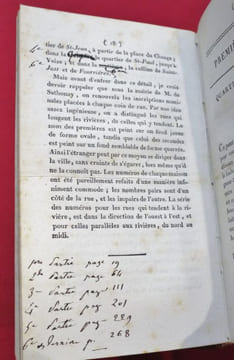 ( 18 )
tier de St-Jean, à partir de la place du Change;
dans le quartier de St-Paul, jusqu'à
Vaise; et dans la colline de Sainte-
Just et de Fourvières.
Mais avant d'entrer dans ce détail, je crois
devoir rappeler que sous la mairie de M. de
Sathonay, on renouvela les inscriptions numé-
rales placées à chaque coin de rue. Par une idée
assez ingénieuse, on a distingué les rues qui
longent les rivières, de celles qui y tendent. Le
nom des premières est peint sur un fond jaune
de forme ovale, tandis que celui des secondes
est peint sur un fond semblable de forme quarrée.
Ainsi l'étranger peut par ce moyen se diriger dans
la ville, sans craindre de s'égarer, lors même qu'il
ne la connoît pas. Les numéros de chaque maison
ont été pareillement refaits d'une manière infi-
niment commode; les nombres pairs sont d'un
côté de la rue, et les impairs de l'autre. La série
des numéros pour les rues qui tendent à la ri-
vière, est dans la direction de l'ouest à l'est, et
pour celles parallèles aux rivières, du nord au
midi.
Partie page 19
Partie page 64
3e Partie page 111
4e Partie page 201
5e Partie page 239
6e p. 268
PREMI
QUART